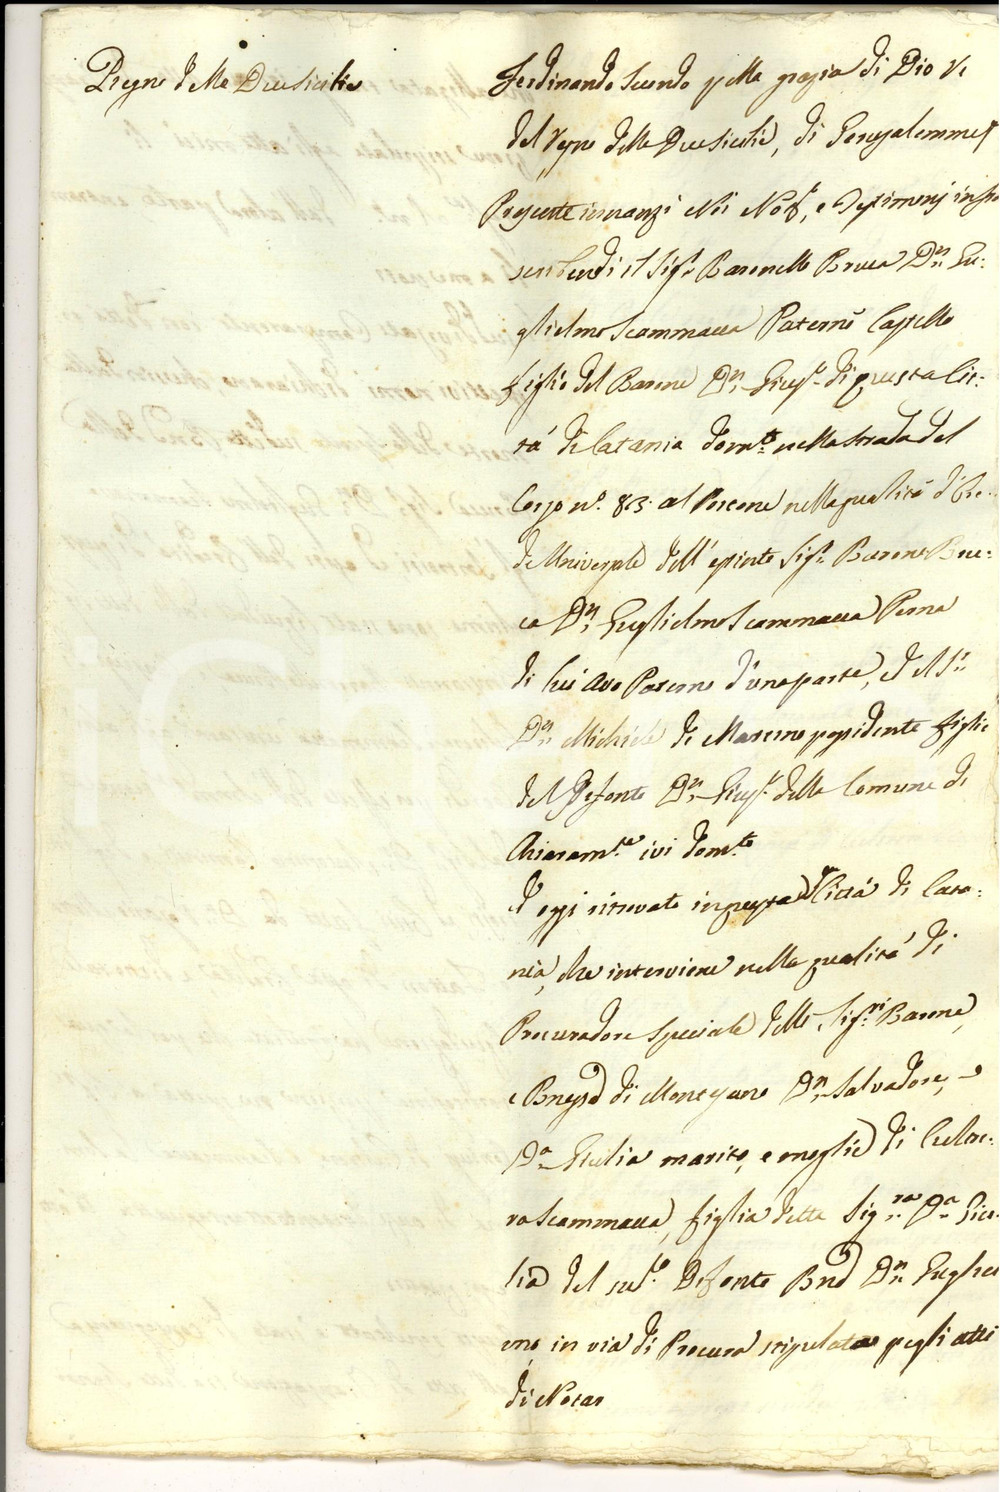 Regno delle Due Sicilie
Ferdinando Secondo pella grazia di Dio
del Regno delle Due Sicilie, di Gerusalemme
Presente innanzi Noi Not.r, e Testimonj
il Sig.r Baronello Bruca D.n Gu:
glielmo Scammacca Paternò Castello
figlio del Barone D.n Gius.e di questa Cit:
tà di Catania dom.to nella strada del
Corso n.o 83. al Portone nella qualità d'Ere:
de Universale dell'estinto Sig.r Barone Bru:
ca D.n Guglielmo Scammacca Perna
di lui Avo Paterno d'una parte, ed il S.r
D.n Michele di Marino possidente figlio
del Defonto D.n Gius.e della Comune di
Chiaram.te ivi dom.to
Ed oggi ritrovato in questa Città di Cata:
nia, che interviene nella qualità di
Procuradore Speciale delli Sig.ri Barone,
e Bness.a di D.n Salvadore, e
D.a Giulia marito, e moglie di
Scammacca, figlia detta Sig.ra D.a Giu:
lia del sud.o Defonto Bne D.n Gugliel
mo, in via di Procura stipulata pegli atti
di Notar